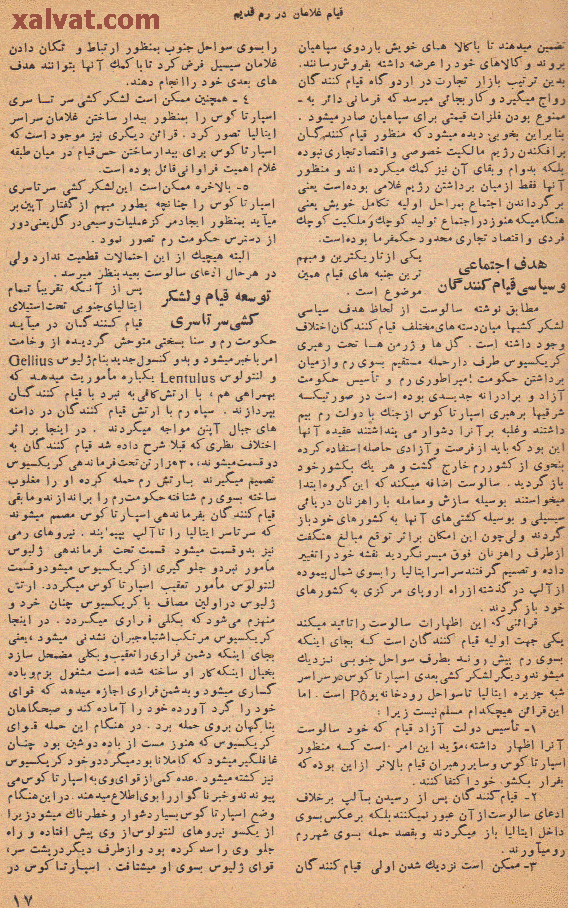 xalvat.com
قیام غلامان در رم قدیم
تضمین میدهند تا باکالا های خویش باردوی سپاهیان
بروند و کالاهای خود را عرضه داشته بفروش رسانند.
بدین ترتیب بازار تجارت در اردوگاه قیام کنندگان
رواج میگیرد و کار بجائی میرسد که فرمانی دائر به-
ممنوع بودن فلزات قیمتی برای سپاهیان صادر میشود.
بنابراین بخوبی دیده میشود که منظور قیام کنندگان
برافکندن رژیم مالکیت خصوصی و اقتصاد تجاری نبوده
بلکه بدوام و بقای آن نیز کمک میکرده اند و منظور
آنها فقط از میان برداشتن رژیم غلامی بوده است یعنی
برگرداندن اجتماع بمراحل اولیه تکامل خویش یعنی
هنگامیکه هنوز در اجتماع تولید کوچک و ملکیت کوچک
فردی و اقتصاد تجاری محدود حکمفرما بوده است.
هدف اجتماعی
و سیاسی قیام کنندگان
یکی از تاریکترین و مبهم
ترین جنبه های قیام همین
موضوع است.
مطابق نوشته سالوست از لحاظ هدف سیاسی
لشکر کشیها میان دسته های مختلف قیام کنندگان اختلاف
وجود داشته است. گل ها و ژرمن ها تحت رهبری
کریکسیوس طرف دار حمله مستقیم بسوی رم و از میان
برداشتن حکومت امپراطوری رم و تأسیس حکومت
آزاد و برادرانه جدیدی بوده است در صورتیکه
شرقیها برهبری اسپارتاکوس از جنگ با دولت رم بیم
داشتند و غلبه بر آنرا دشوار می پنداشتند عقیده آنها
این بود که باید از فرصت و آزادی حاصله استفاده کرده
بنحوی از کشور رم خارج گشت و هر یک بکشور خود
بازگردید. سالوست اضافه میکند که این گروه ابتدا
میخواستند بوسیله سازش و معامله با راهزنان دریائی
سیسیلی و بوسیله کشتی های آنها به کشورهای خود باز
گردند ولی چون این امکان براثر توقع مبالغ هنگفت
از طرف راهزنان فوق میسر نگردید نقشه خود را تغییر
داده و تصمیم گرفتند سراسر ایتالیا را بسوی شمال پیموده
از آلپ درگذشته از راه اروپای مرکزی به کشورهای
خود بازگردند.
قرائنی که این اظهارات سالوست را تائید میکند
یکی جهت اولیه قیام کنندگان است که بجای اینکه
بسوی رم پیش روند بطرف سواحل جنوبی نزدیک
میشوند و دیگر لشکر کشی بعدی اسپارتاکوس در سراسر
شبه جزیره ایتالیا تا سواحل رودخانه پو Pô است. اما
این قرائن هیچکدام مسلم نیست زیرا:
۱- تأسیس دولت آزاد قیام که خود سالوست
آنرا اظهار داشته، مؤید این امر است که منظور
اسپارتاکوس و سایر رهبران قیام بالاتر از این بوده که
بفرار بکشور خود اکتفا کنند.
۲- قیام کنندگان پس از رسیدن بآلپ برخلاف
ادعای سالوست از آن عبور نمیکنند بلکه برعکس بسوی
داخل ایتالیا باز میگردند و بقصد حمله بسوی شهر رم
رو میآورند.
۳- ممکن است نزدیک شدن اولی قیام کنندگان
را بسوی سواحل جنوب بمنظور ارتباط و تکان دادن
غلامان سیسیل فرض کرد تا با کمک آنها بتوانند هدف
های بعدی خود را انجام دهند.
۴- همچنین ممکن است لشکر کشی سر تا سری
اسپارتاکوس را بمنظور بیدار ساختن غلامان سراسر
ایتالیا تصور کرد. قرائن دیگری نیز موجود است که
اسپارتاکوس برای بیدار ساختن حس قیام در میان طبقه
غلام اهمیت فراوانی قائل بوده است.
۵- بالاخره ممکن است این لشکر کشی سر تا سری
اسپارتاکوس را چنانچه بطور مبهم از گفتار آپین بر
میآید بمنظور ایجاد مرکز عملیات وسیعی در گل یعنی دور
از دسترس حکومت رم تصور نمود.
البته هیچیک از این احتمالات قطعیت ندارد ولی
در هر حال ادعای سالوست بعید بنظر میرسد.
توسعه قیام و لشکر
کشی سرتاسری
پس از آنکه تقریباً تمام
ایتالیای جنوبی تحت استیلای
قیام کنندگان در میآید
حکومت رم و سنا بسختی متوحش گردیده از وخامت
امر باخبر میشود و بدو کنسول جدید بنام ژلیوس Gellius
و لنتولوس Lentulus یکباره مأموریت میدهد که
بهمراهی هم، با ارتش کافی به نبرد با قیام کنندگان
بپردازند. سپاه رم با ارتش قیام کنندگان در دامنه
های جبال آپنن مواجه میگردند. در اینجا براثر
اختلاف نظری که قبلا شرح داده شد قیام کنندگان به
دو قسمت میشوند، ۳۰ هزار تن تحت فرماندهی کریکسیوس
تصمیم میگیرند بارتش رم حمله کرده او را مغلوب
ساخته بسوی رم شتافته حکومت رم را براندازند و مابقی
قیام کنندگان بفرماندهی اسپارتاکوس مصمم میشوند
که سرتاسر ایتالیا را تا آلپ بپیمایند. نیروهای رمی
نیز بدو قسمت میشود قسمت تحت فرماندهی ژلیوس
مأمور نبرد و جلوگیری از کریکسیوس میشود و قسمت
لنتولوس مأمور تعقیب اسپارتاکوس میگردد. ارتش
ژلیوس در اولین مصاف با کریکسیوس چنان خرد و
منهزم میشود که بکلی فراری میگردد. در اینجا
کریکسیوس مرتکب اشتباه جبران نشدنی میشود، یعنی
بجای اینکه دشمن فراری را تعقیب و بکلی مضمحل سازد
بخیال اینکه کار او ساخته شده است مشغول بزم و باده
گساری میشود و بدشمن فراری اجازه میدهد که قوای
خود را گرد آورده خود را آماده کند و صبحگاهان
بناگهان بروی حمله برد. در هنگام این حمله قوای
کریکسیوس که هنوز مست از باده دوشین بود چنان
غافلگیر میشود که کاملا نابود میگردد و خود کریکسیوس
نیز کشته میشود. عده کمی از قوای وی به اسپارتاکوس می
پیوندند و خبر ناگوار را بوی اطلاع میدهند. در این هنگام
وضع اسپارتاکوس بسیار دشوار و خطرناک میشود زیرا
از یکسو نیروهای لنتولوس از وی پیش افتاده و راه
جلو وی را سد کرده بود و از طرف دیگر در پشت سر،
قوای ژلیوس بسوی او میشتافت. اسپارتاکوس در
۱۷